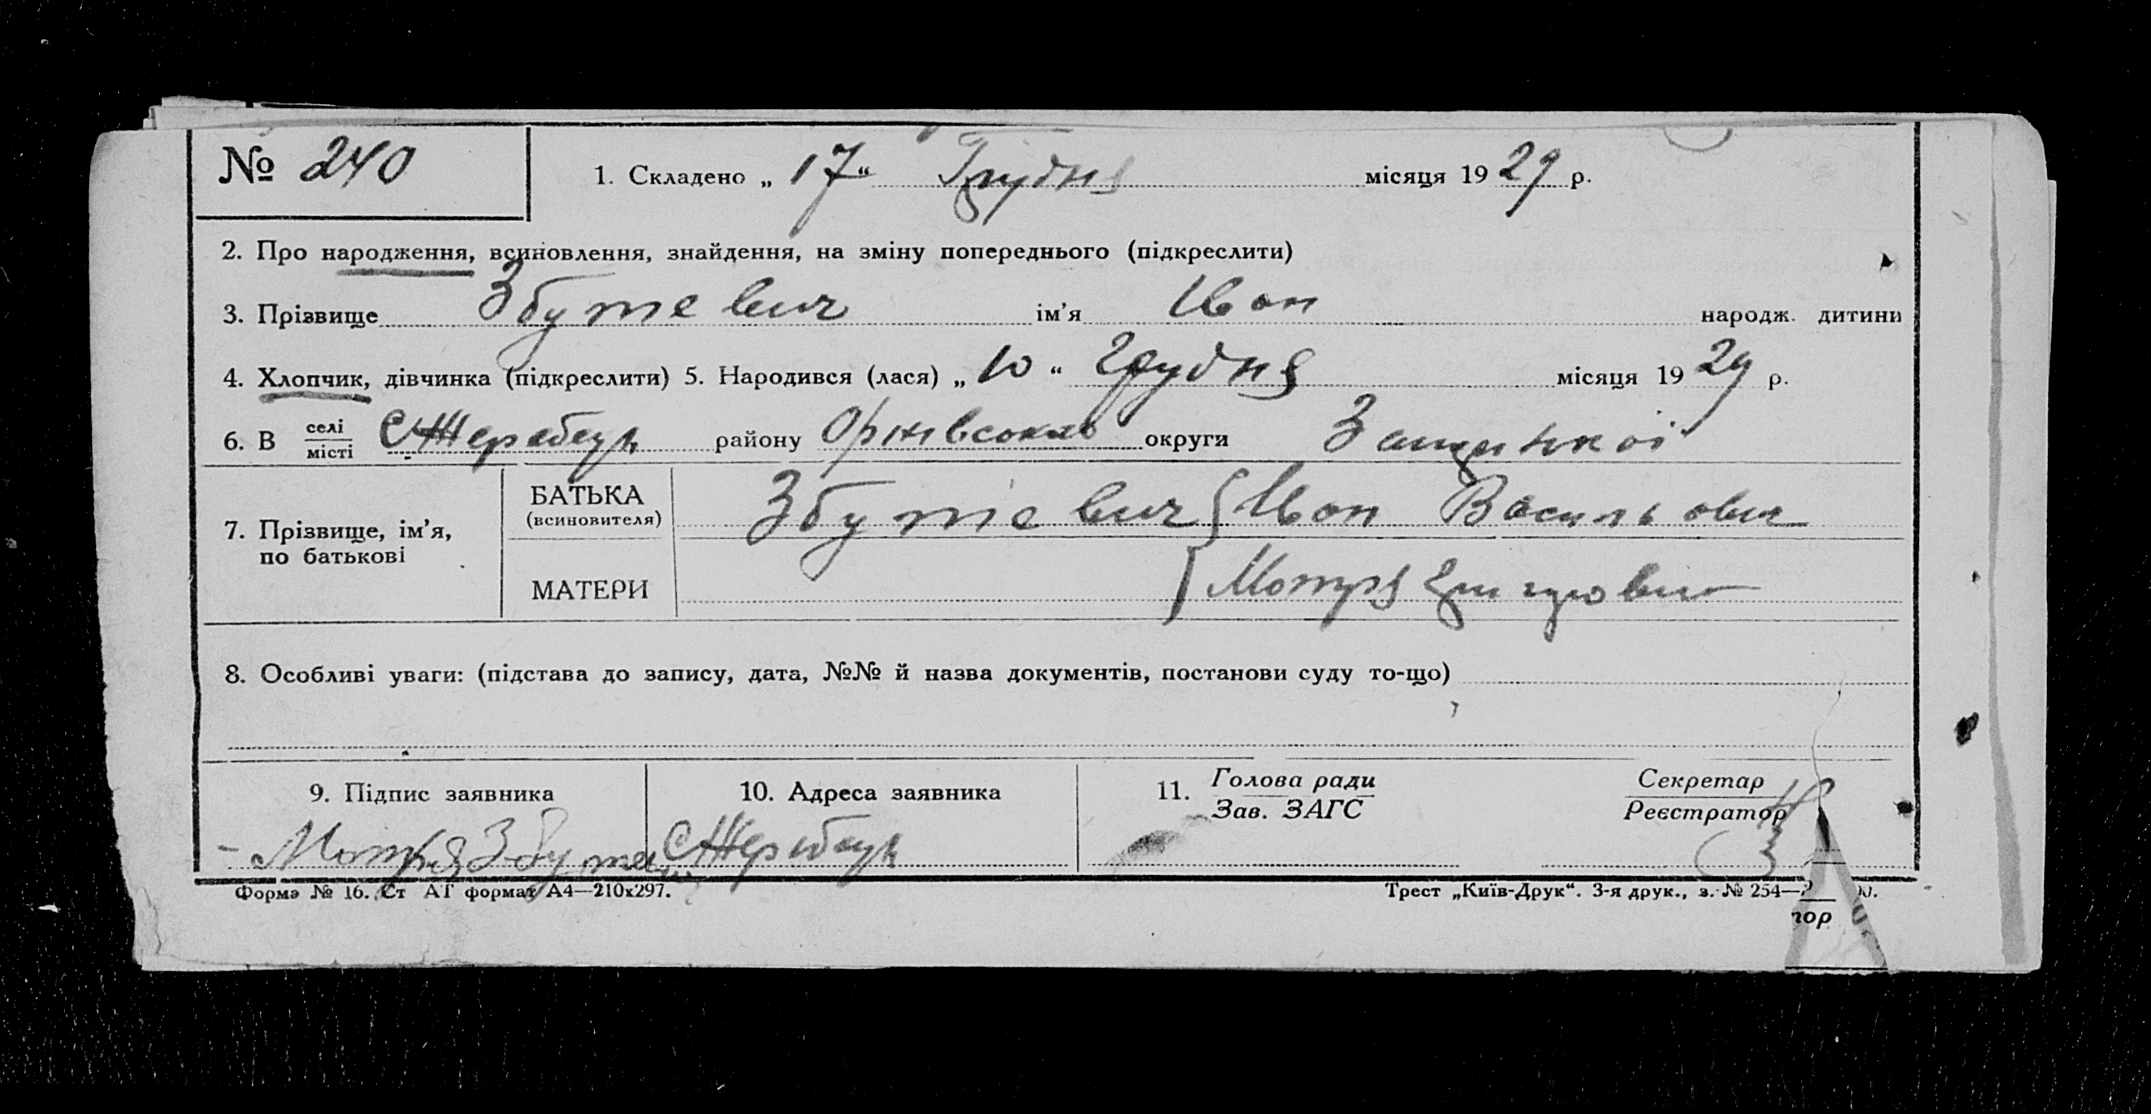 № 240 1. Складено „ 17 “ Грудня місяця 19 29 р.
2. Про народження, всиновлення, знайдення, на зміну попереднього (підкреслити)
3. Прізвище Збутевич ім’я Іван народж. дитини
4. Хлопчик, дівчинка (підкреслити) 5. Народився (лася) „ 10 “ грудня місяця 19 29 р.
6. В селі
місті
району округи
7. Прізвище, ім’я,
по батькові
БАТЬКА
(всиновителя)
Збутевич Іван Васильович
МАТЕРИ
Мотря
8. Особливі уваги: (підстава до запису, дата, №№ й назва документів, постанови суду то-що)
9. Підпис заявника 10. Адреса заявника 11. Голова ради
Зав. ЗАГС
Секретар
Реєстратор
Мотря
Форма № 16. Ст АТ формат А4—210х297. Трест „Київ-Друк“. 3-я друк., з. № 254—
тор